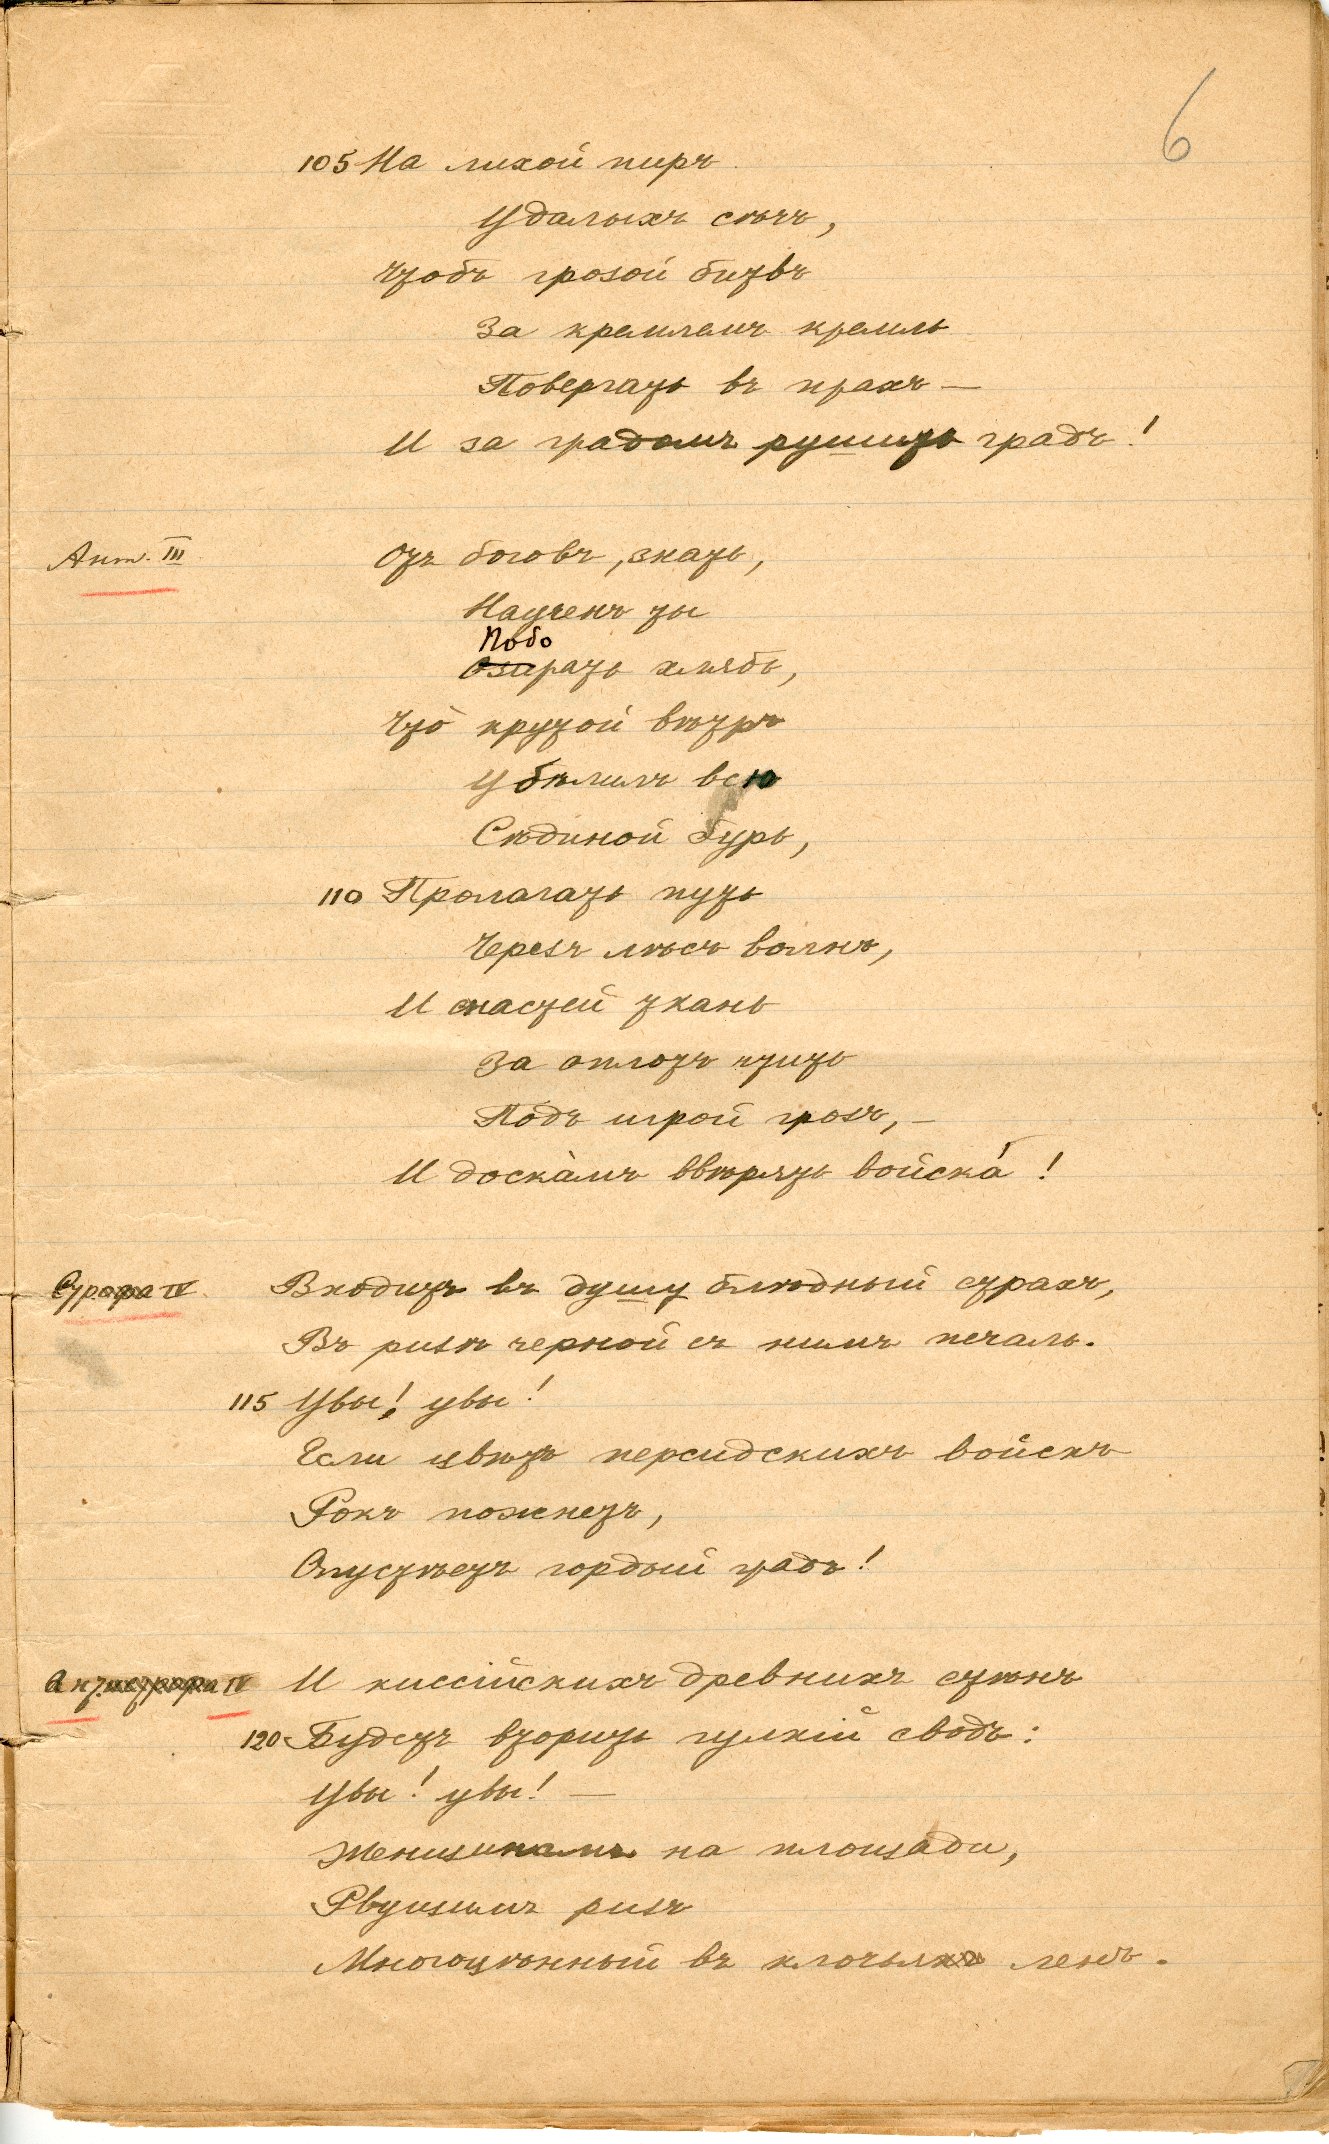 6
105 На лихой пиръ
Удалыхъ сѣчъ,
Чтобъ грозой битвъ
За кремлемъ кремль
Повергать въ прахъ —
И за градомъ рушить градъ!
Ант. III
Отъ боговъ, знать,
Наученъ ты
Побо
Озирать хлябь,
Что̀ крутой вѣтръ
Убѣлилъ всю
Сѣдиной бурь,
110 Пролагать путь
Черезъ лѣсъ волнъ,
И снастей ткань
За оплотъ чтить
Подъ игрой грозъ, —
И доска̀мъ ввѣрять войска́!
Строфа IV
Входитъ въ душу блѣдный страхъ,
Въ ризѣ черной съ нимъ печаль.
115 Увы! увы!
Если цвѣтъ персидскихъ войскъ
Рокъ пожнетъ,
Опустѣетъ гордый градъ!
Антистрофа IV
И киссійскихъ древнихъ стѣнъ
120 Будетъ вторить гулкій сводъ:
Увы! увы! —
Женщинамъ на площади,
Рвущимъ ризъ
Многоцѣнный въ клочьяхъ ленъ.